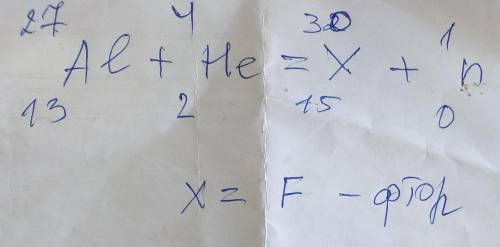 27 4 30 1
Al + He = X + n
13 2 15 0
X = F - фтор